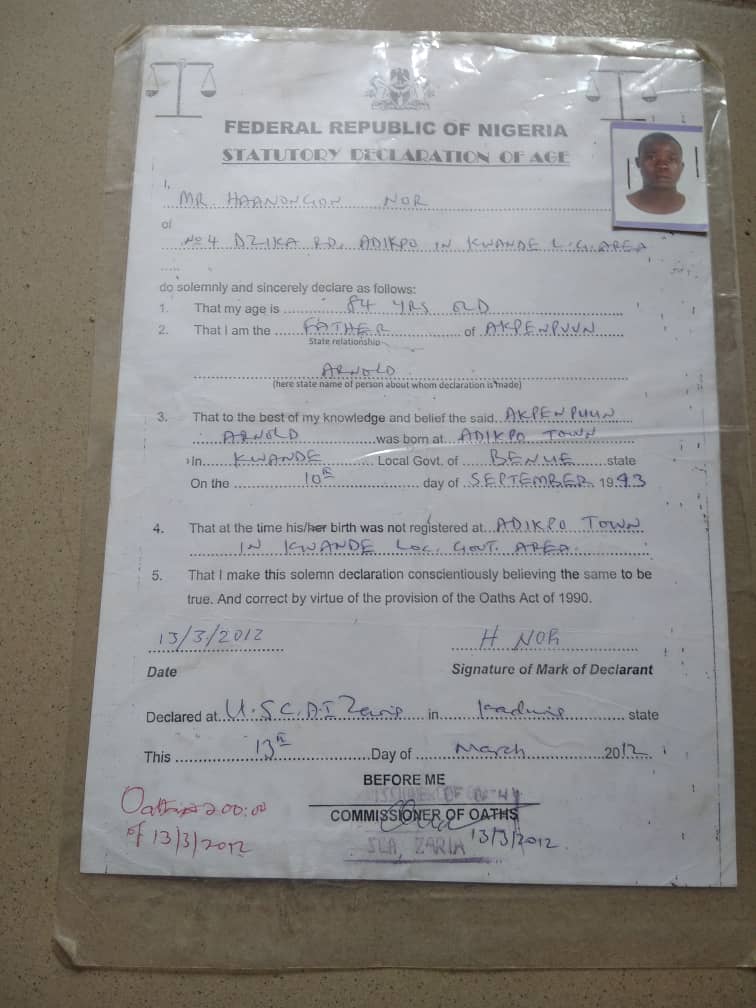 FEDERAL REPUBLIC OF NIGERIA
STATUTORY DECLARATION OF AGE
I,
MR HAANONGON NOR
of
No 4 DZIKA RD. ADIKPO IN KWANDE L.G. AREA
do solemnly and sincerely declare as follows:
1. That my age is 84 YRS OLD
2. That I am the FATHER of AKPENPUUN
State relationship
ARNOLD
(here state name of person about whom declaration is made)
3. That to the best of my knowledge and belief the said. AKPENPUUN
ARNOLD was born at ADIKPO TOWN
In KWANDE Local Govt. of BENUE state
On the 10th day of SEPTEMBER 1993
4. That at the time his/her birth was not registered at ADIKPO TOWN
IN KWANDE LOC. GOVT. AREA.
5. That I make this solemn declaration conscientiously believing the same to be
true. And correct by virtue of the provision of the Oaths Act of 1990.
13/3/2012 H NOR
Date Signature of Mark of Declarant
Declared at U.S.C.A.I Zaria in Kaduna state
This 13th Day of March 2012
BEFORE ME
COMMISSIONER OF OATHS
ZARIA 13/3/2012
200:00
of 13/3/2012